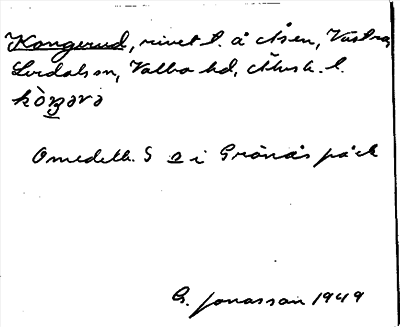 Kongerud, rivet t. å Åsen, Västra
Lerdals sn, Valbo hd, Älvsb. l.
kòŋərə
Omedelb. S
G. Jonasson 1949